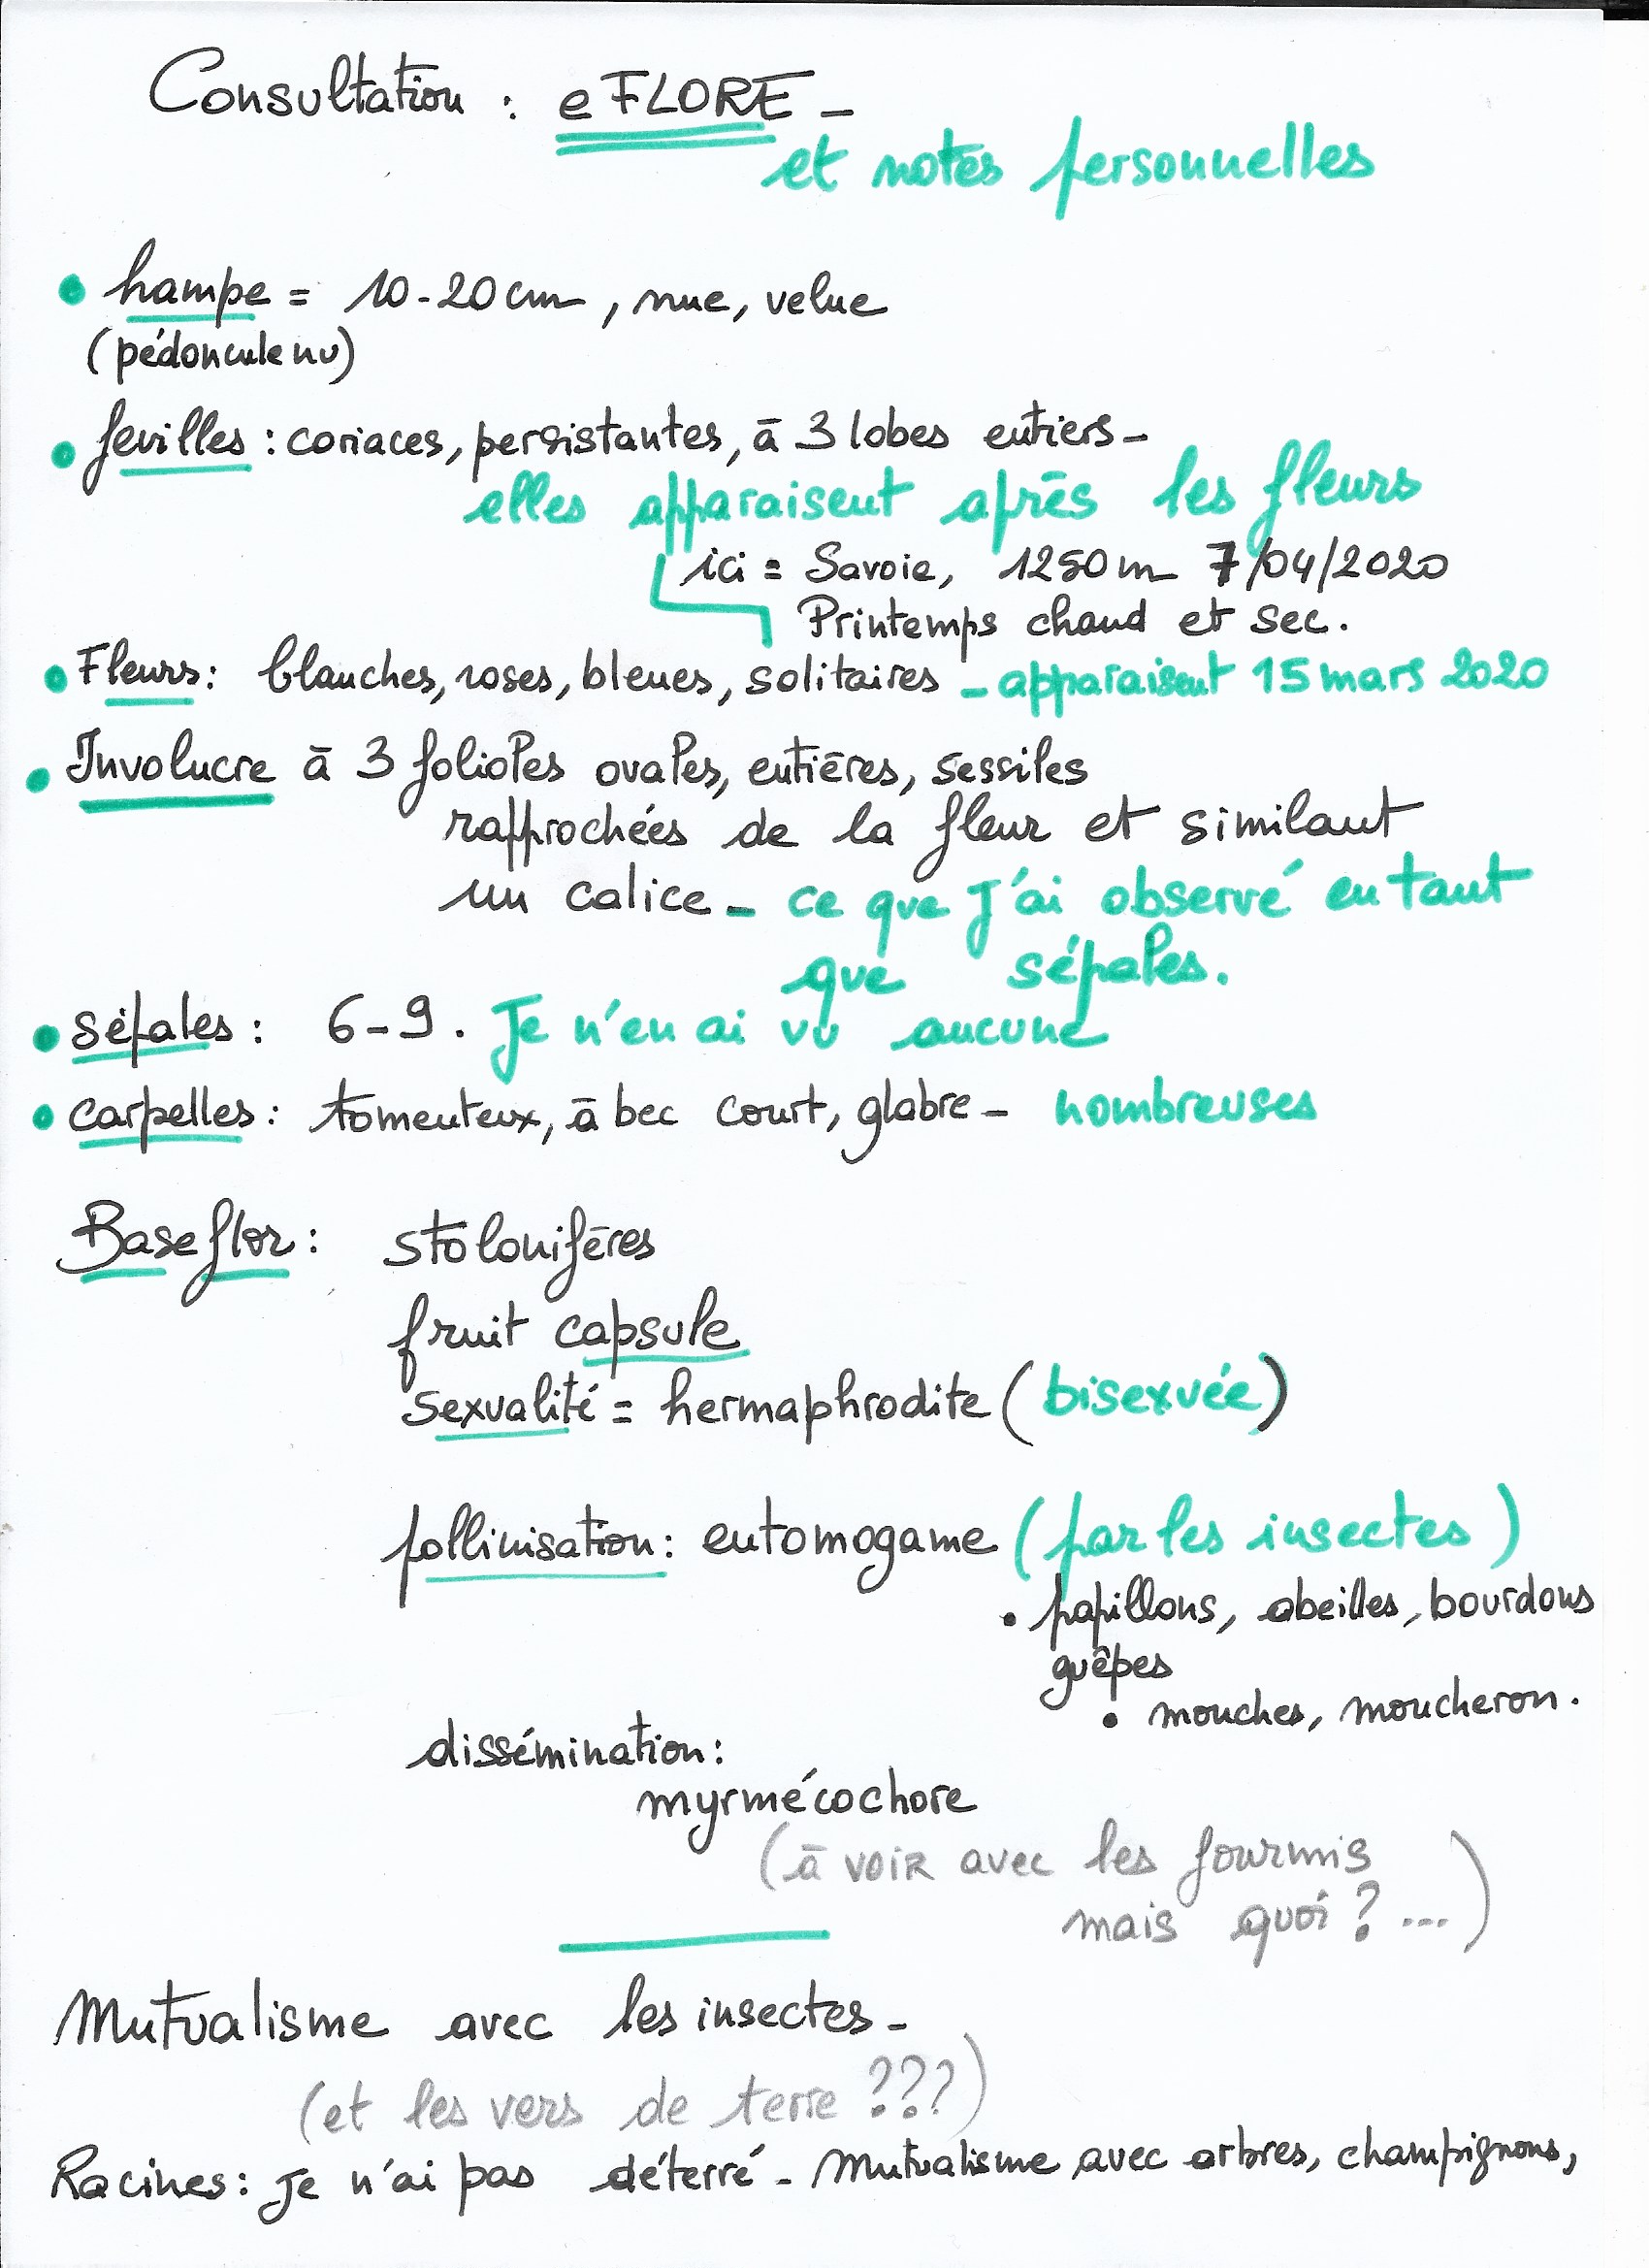 Consultation : eFLORE -
et notes personnelles
• hampe = 10-20 cm, nue, velue
(pédoncule nu)
• feuilles : coriaces, persistantes, à 3 lobes entiers -
elles apparaisent après les fleurs
ici = Savoie, 1250 m 7/04/2020
Printemps chaud et sec.
• Fleurs : blanches, roses, bleues, solitaires - apparaisent 15 mars 2020
• Involucre à 3 folioles ovales, entières, sessiles
rapprochées de la fleur et similant
un calice - ce que j'ai observé en tant
que sépales.
• sépales : 6-9. Je n'en ai vu aucune
• carpelles : tomenteux, à bec court, glabre - nombreuses
Baseflor : stolonifères
fruit capsule
sexualité = hermaphrodite (bisexuée)
pollinisation : entomogame (par les insectes)
• papillons, abeilles, bourdons
guêpes
• mouches, moucheron.
dissémination :
myrmécochore
(à voir avec les fourmis
mais quoi ? ...)
Mutualisme avec les insectes -
(et les vers de terre ???)
Racines : je n'ai pas déterré - Mutualisme avec arbres, champignons,